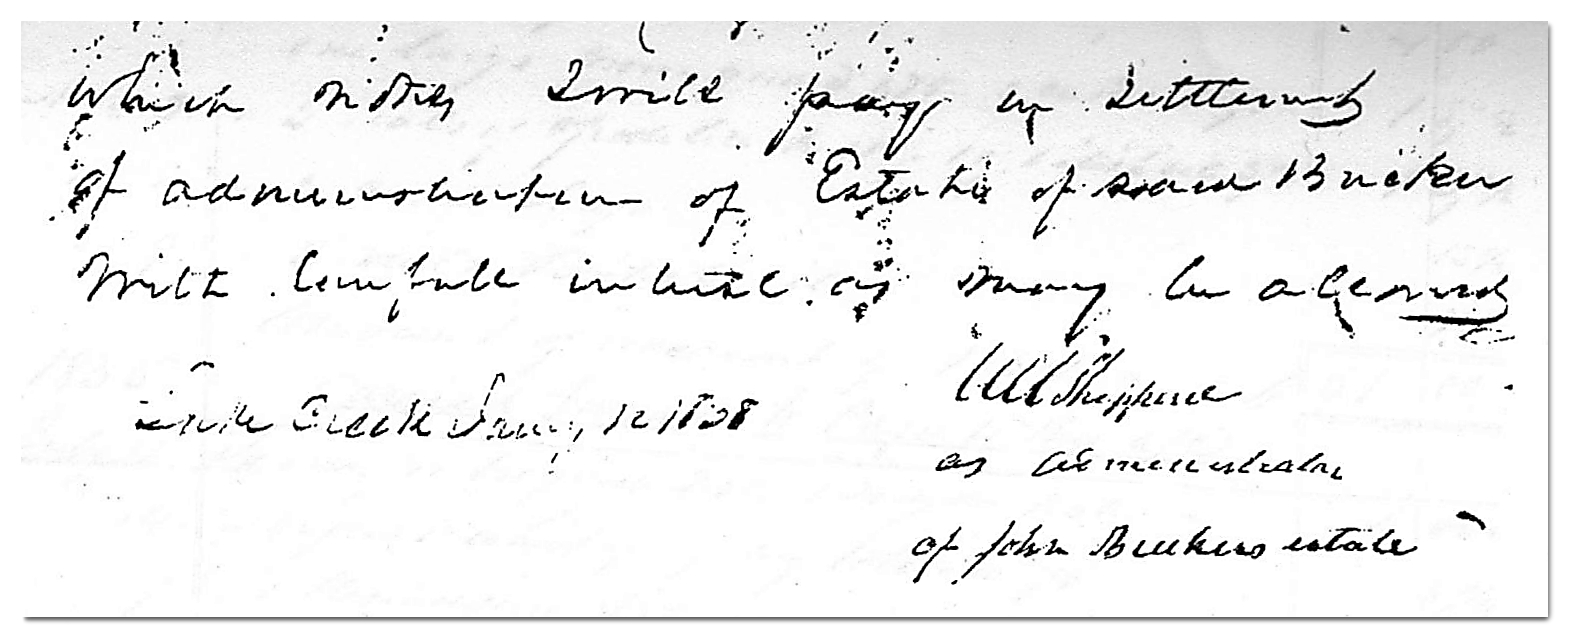 which notes I will pay in settlement
of administration of Estate of said Bricker
With lawfull interest as may be allowed
Creek Jany 12 1838
W W Shepperd
as administrator
of John Brickers estate